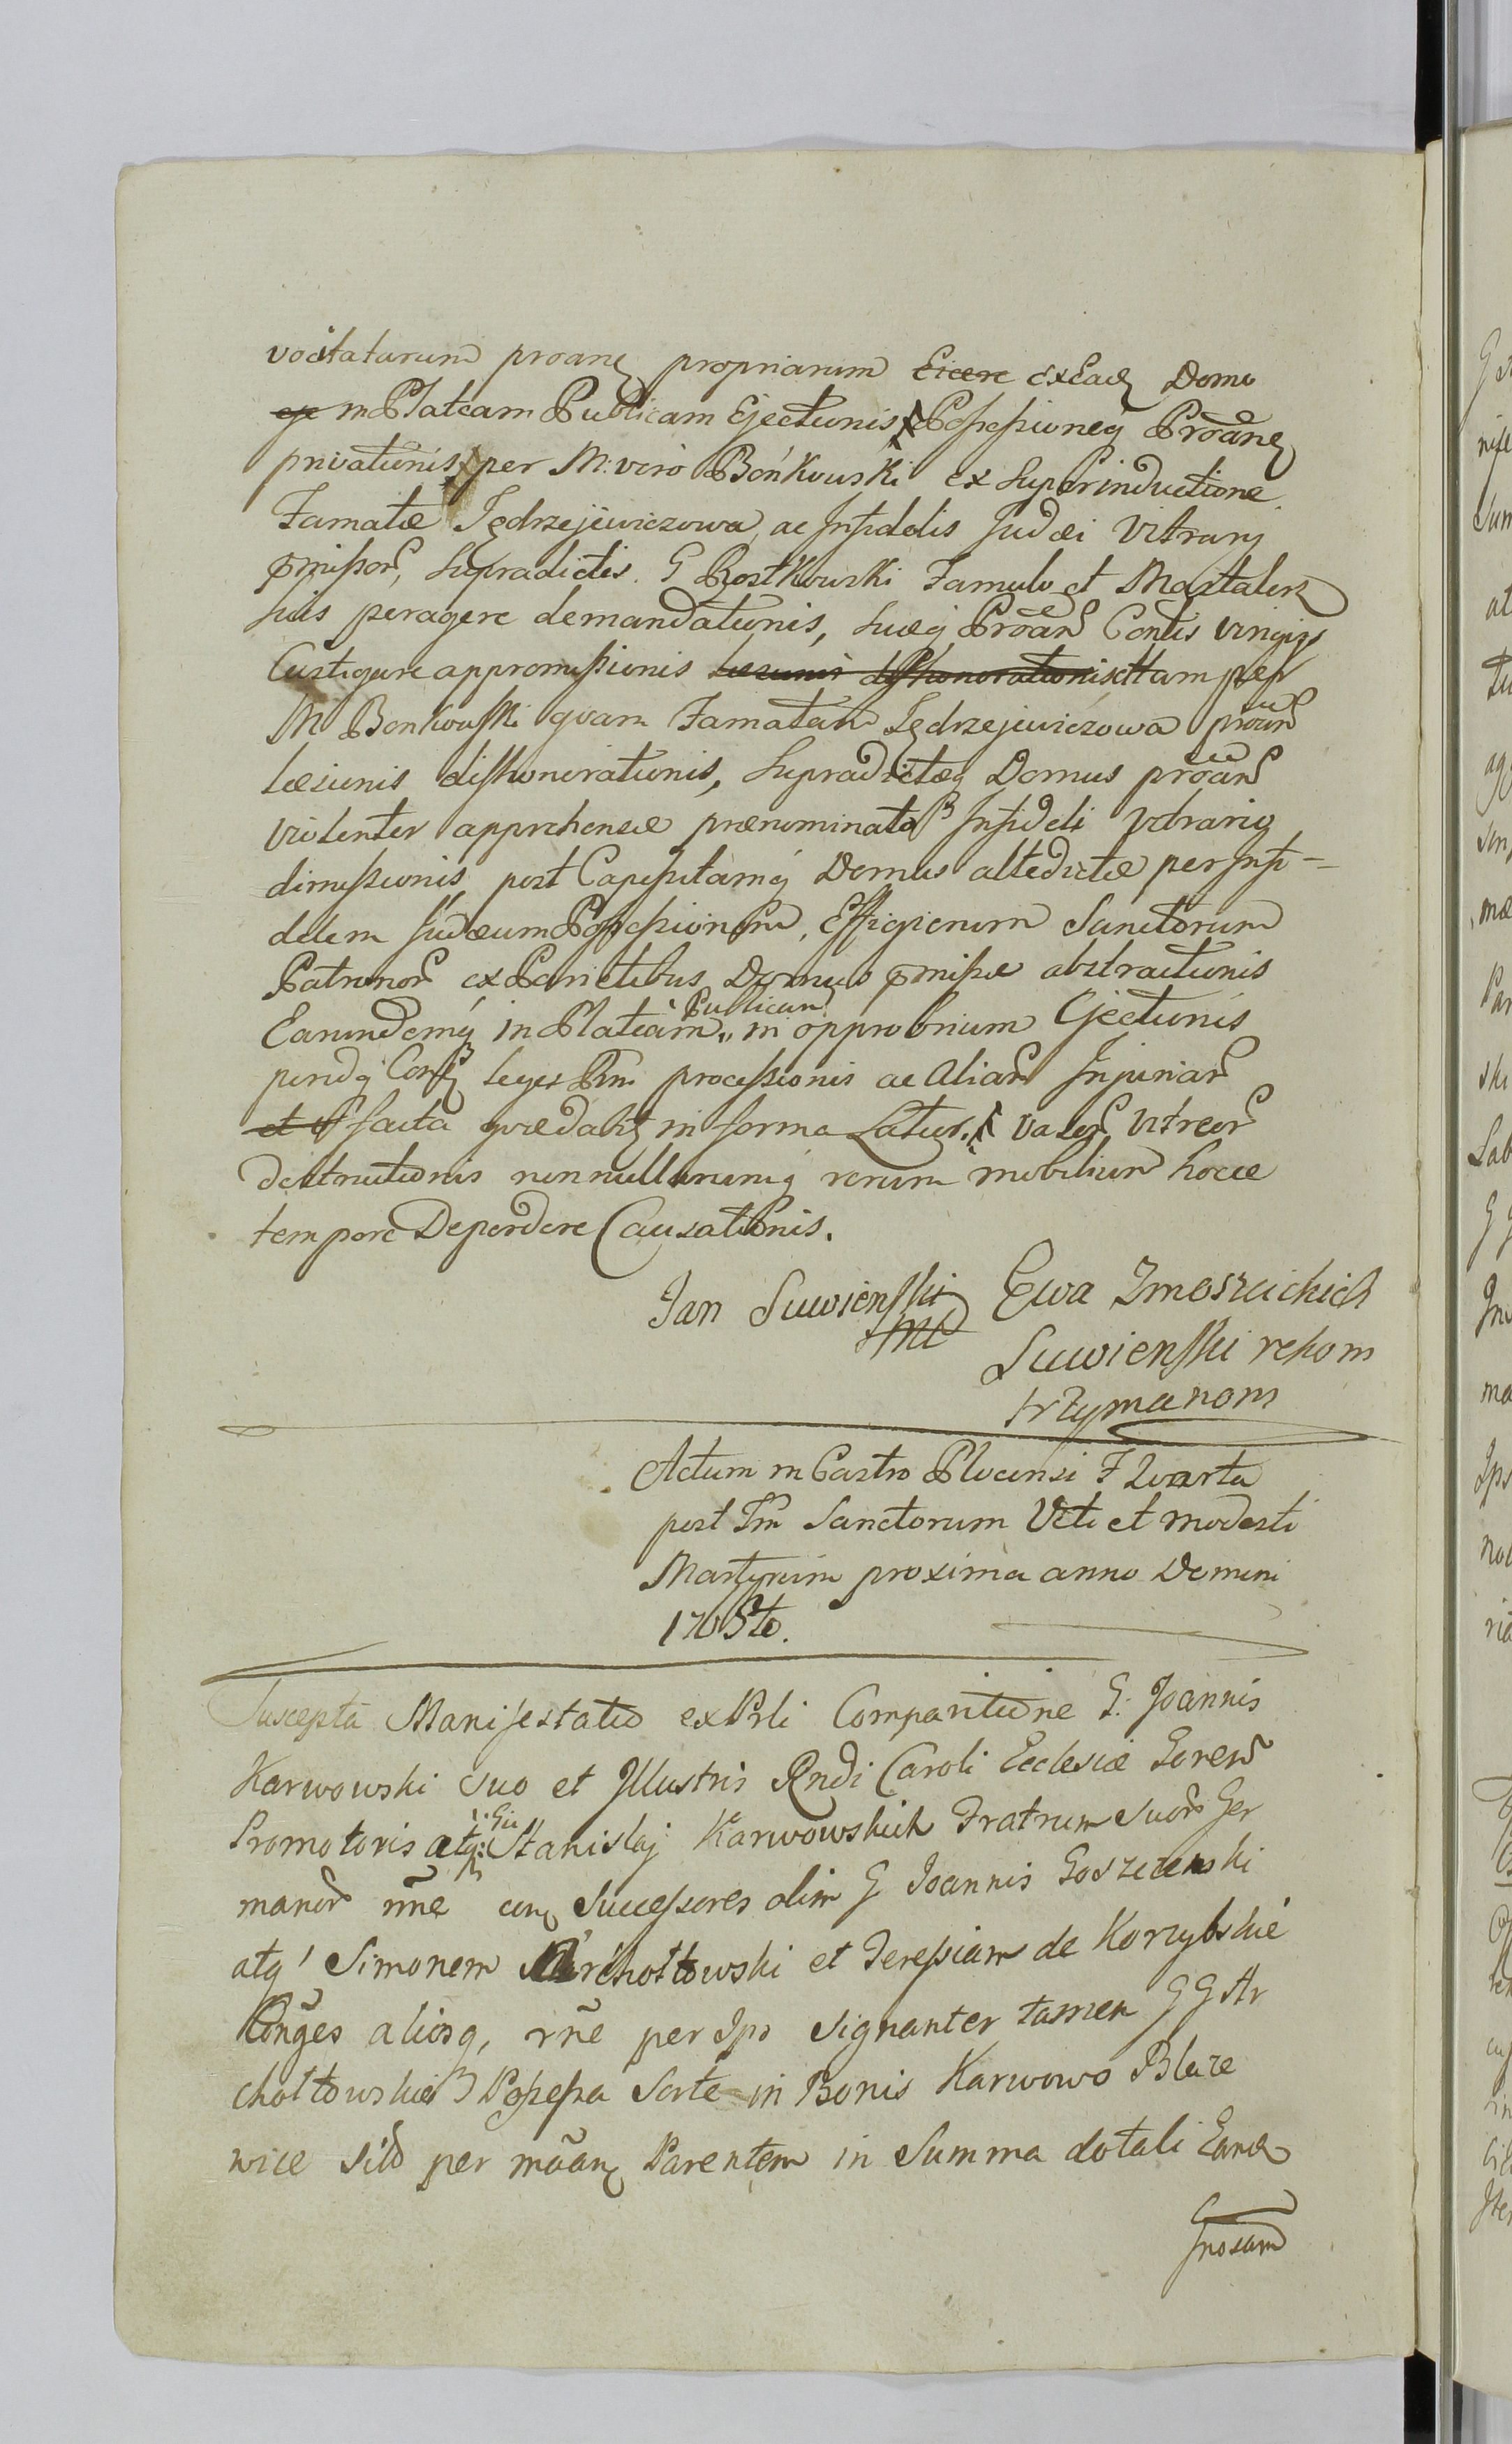 vocitatarum proanę propriarum Eicere exEadę Domo
eje in Plateam Publicam Ejectionis Possessioneq Proanę
privationis per M: viro Bońkowski ex Superinductione
Famatæ Jędrzejewiczowa, ac Infidelis Judæi Vitrarij
pmissor, Supradictis. G Rostkowski Famulo et Masztalerz
suis peragere demandationis, suæq Proan Contis
Castigare appromissionis læsionis dishonorationis ttam per
M Bonkowski qvam Famatam Jędrzejewiczowa proan
læsionis dishonorationis, Supradictæq Domus proan
violenter apprehensæ prænominato Infideli Vitrario
dimissionis, post Capessitamq Domus altedictæ per Infi-
delem Judæum Possessionem, Effigierum Sanctorum
Patronor ex Parietibus Domus pmissæ abstractionis
Earundemq in Plateam Publicam in opprobrium Ejectionis
leges processionis ac Aliar Injuriar
et facta in forma Latius. Vasor vitreor
destructionis nonnullarumq rerum mobilium hocce
tempore Deperdere Causationis.
Jan Suwienski Ewa Zmoszcickich
mp Suwienski rękom
trzymanom
Actum in Castro Plocensi F Quarta
post Fm Sanctorum Viti et Modesti
Martyrum proxima anno Domini
Suscepta Manifestatio exPrli Comparitione G: Joannis
Karwowski suo et Illustris Rndi Caroli Ecclesiæ
Promotoris atq: Gsi Stanislaj Karwowskich Fratrum suor Ger
manor nne Successores olim G Joannis
atq Simonem et Teressiam de Korzybskie
Conges aliosq, rne per Ipo signanter tamen GG Ar
chottowskie Possessa Sorte in Bonis Karwowo
wice sibi per Parentem in Summa dotali